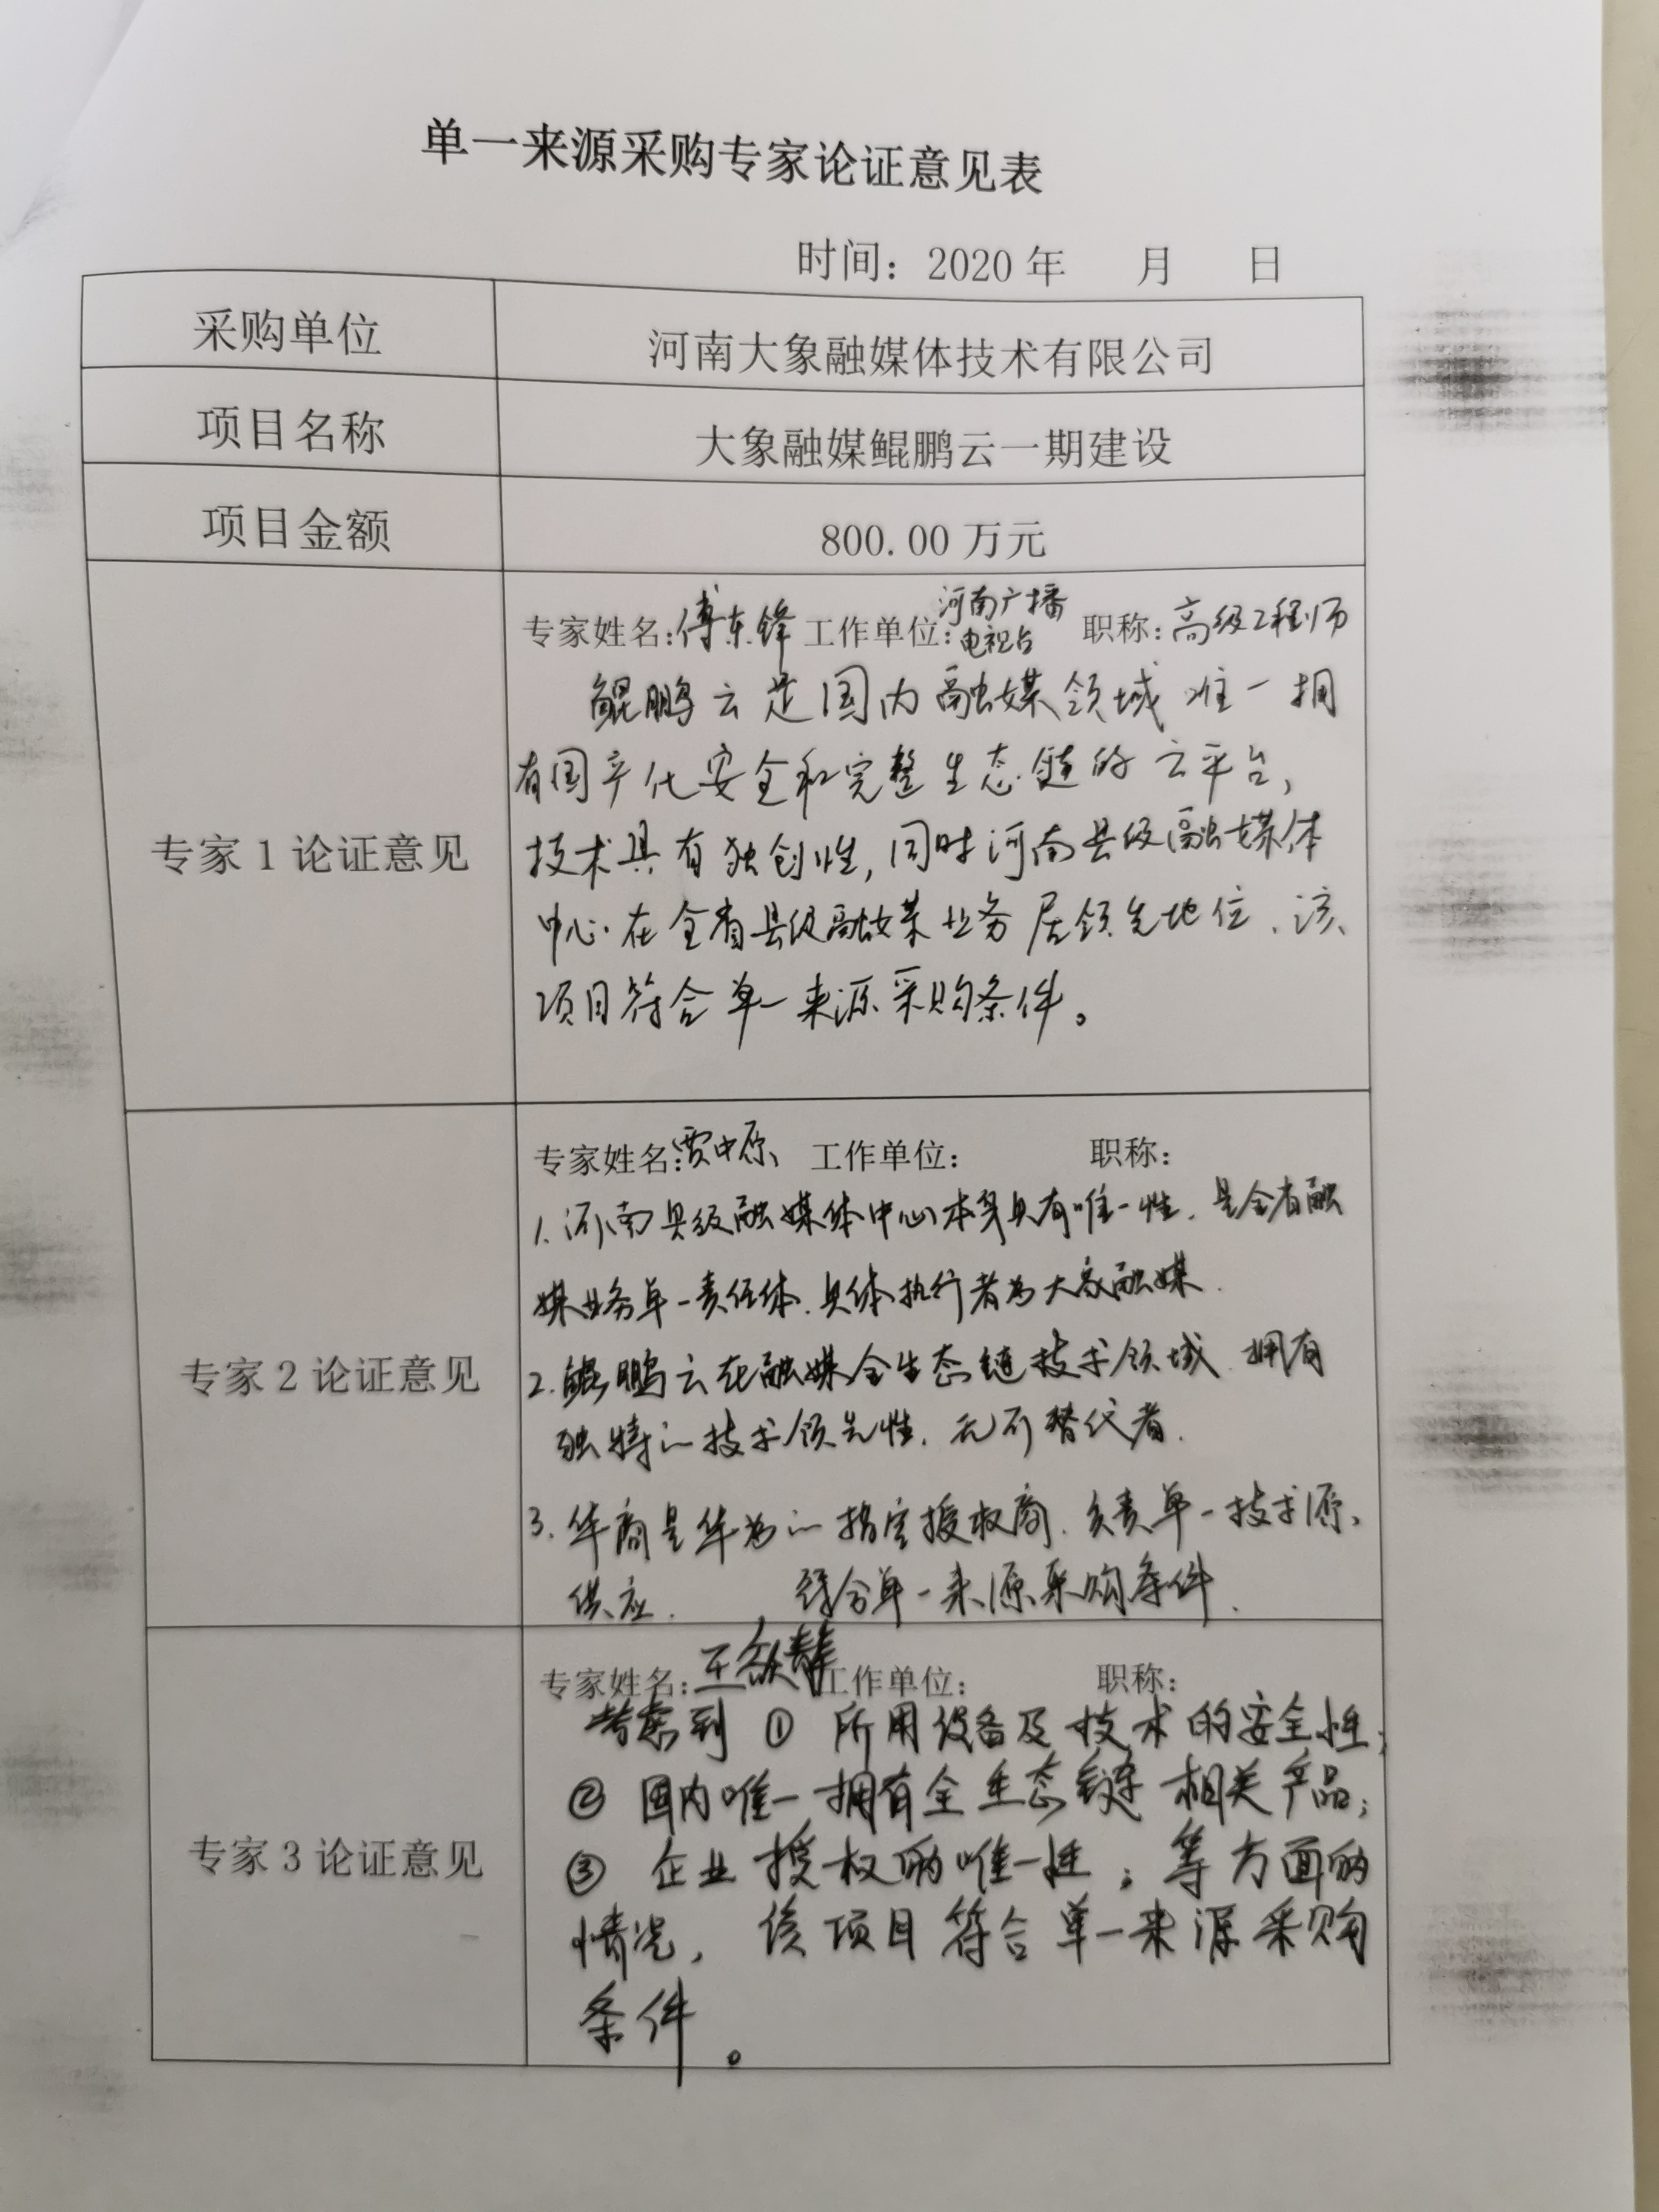 单一来源采购专家论证意见表
时间：2020年 月 日
采购单位 河南大象融媒体技术有限公司
项目名称 大象融媒鲲鹏云一期建设
项目金额 800.00万元
专家1论证意见
专家姓名：傅东锋 工作单位：河南广播电视台 职称：高级工程师
鲲鹏云是国内融媒领域唯一拥
有国产化安全和完整生态链的云平台，
技术具有独创性，同时河南县级融媒体
中心在全省县级融媒业务居领先地位、该
项目符合单一来源采购条件。
专家2论证意见
专家姓名：贾中原 工作单位： 职称：
1.河南县级融媒体中心本身具有唯一性，是全省融
媒业务单一责任体，具体执行者为大象融媒．
2.鲲鹏云在融媒全生态链技术领域，拥有
独特的技术领先性，无可替代者．
3.华商是华为的指定授权商，负责单一技术源
供应． 符合单一来源采购条件．
专家3论证意见
专家姓名：王欣静 工作单位： 职称：
考虑到①所用设备及技术的安全性；
②国内唯一拥有全生态链相关产品；
③企业授权的唯一性；等方面的
情况，该项目符合单一来源采购
条件。